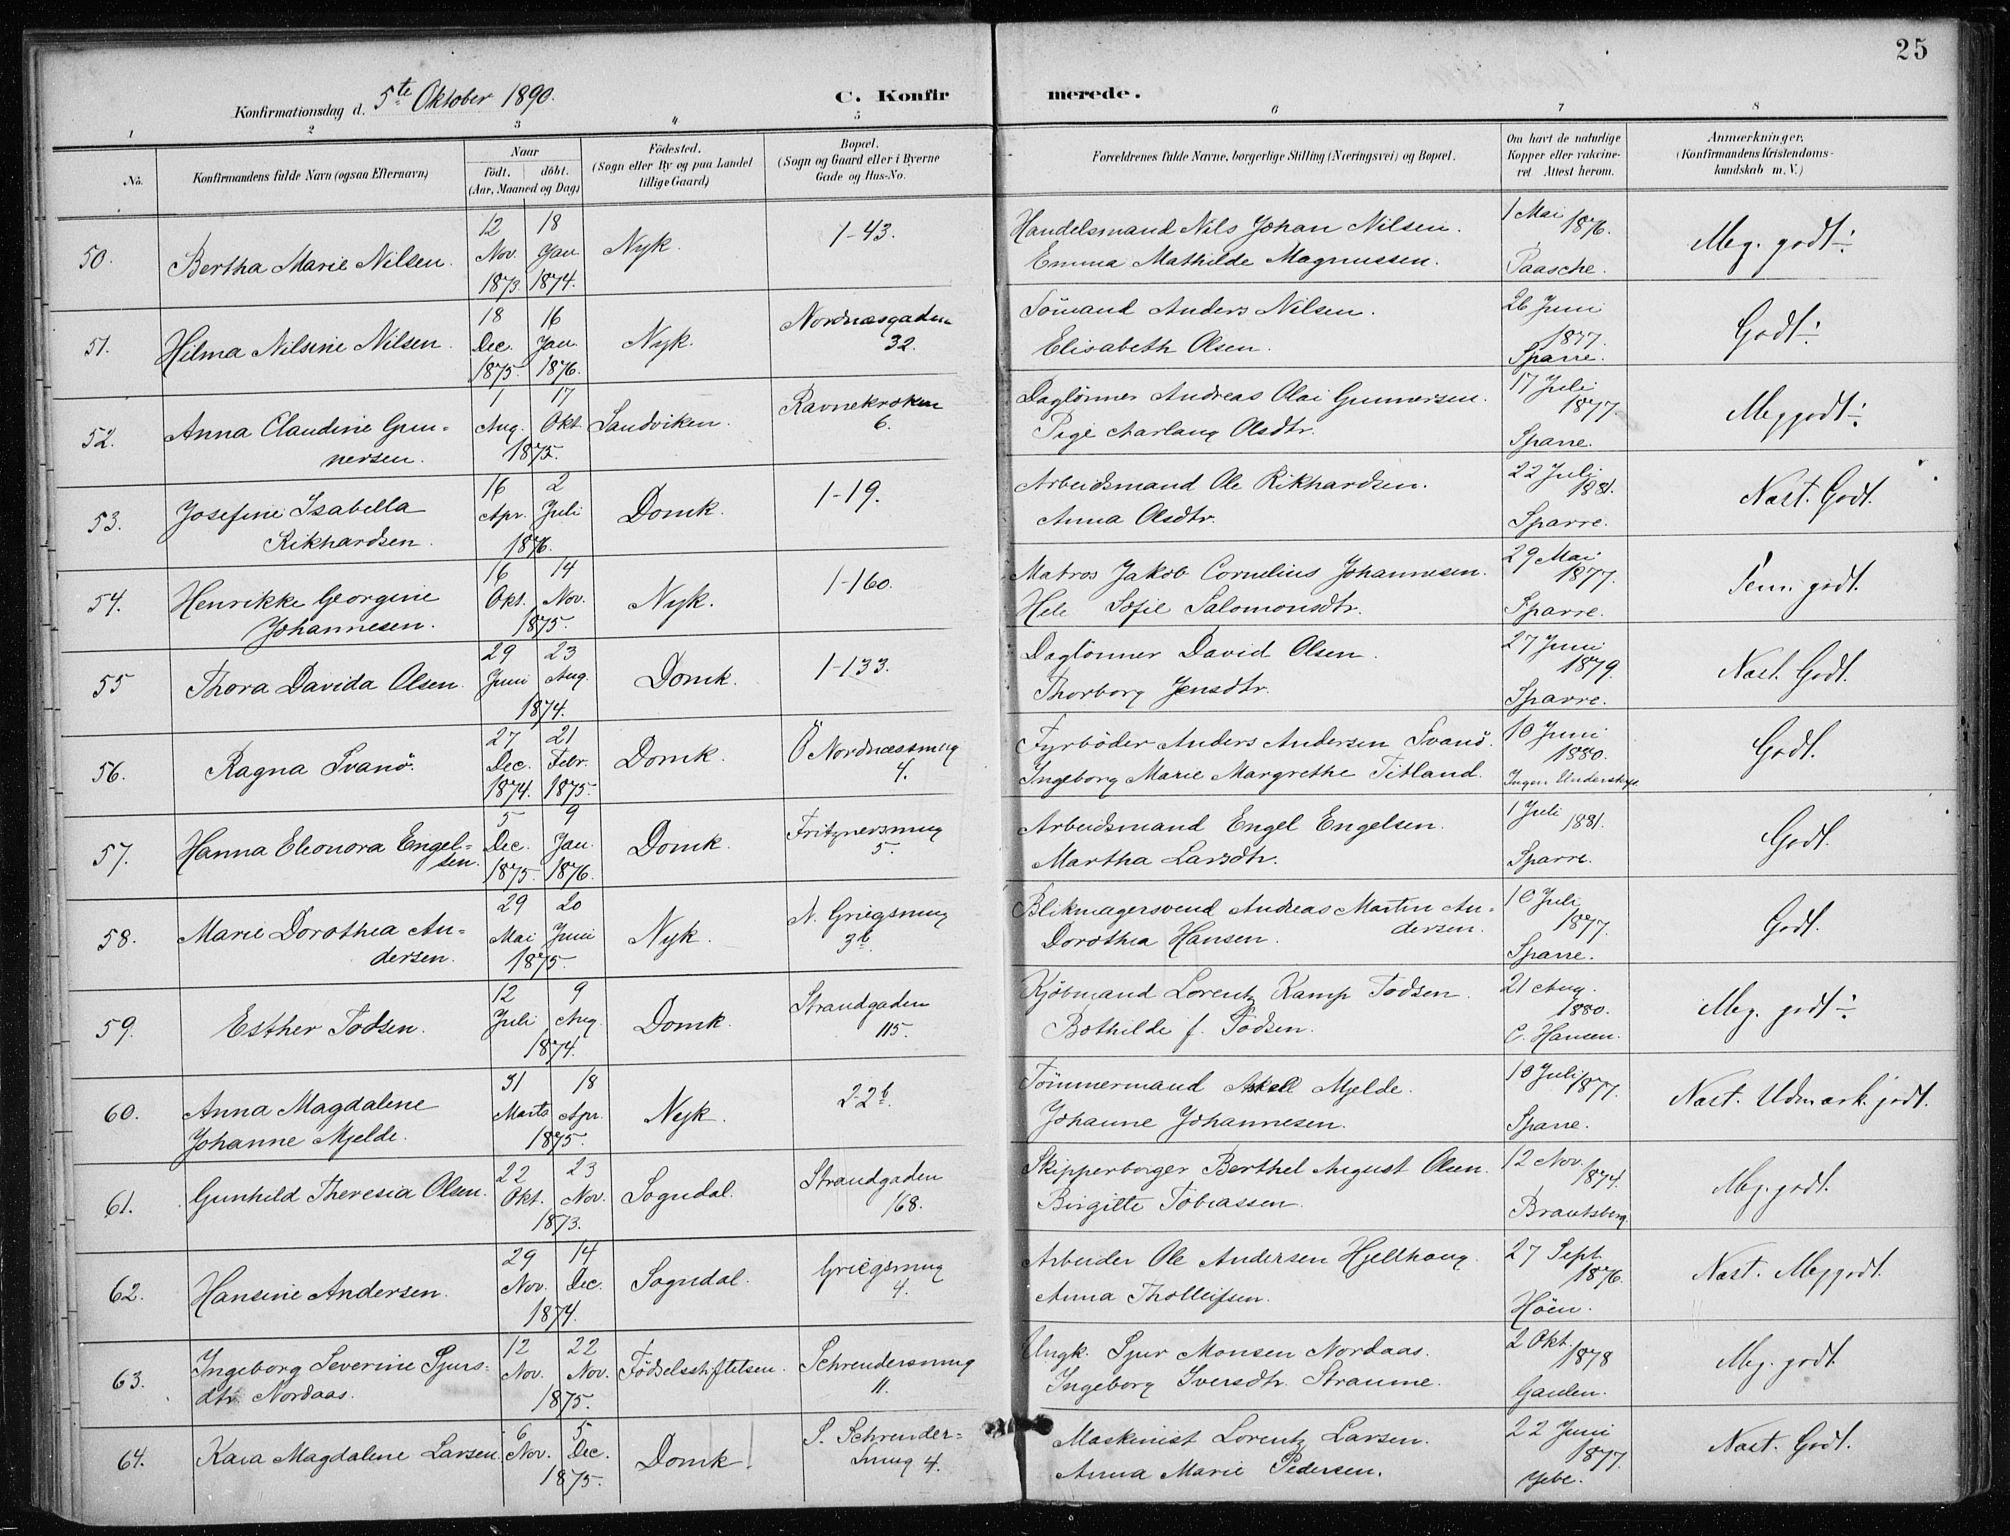 25
Konfirmationsdag d. 5te Oktober 1890. C. Konfirmerede.
1 2 3 4 5 6 7 8
No. Konfirmandens fulde Navn (ogsaa Efternavn) Naar født. døbt. (Aar, Maaned og Dag) Fødested. (Sogn eller By og paa Landet tillige Gaard) Bopæl. (Sogn og Gaard eller i Byerne Gade og Hus-No. Forældrenes fulde Navne, borgerlige Stilling (Næringsvei) og Bopæl. Om havt de naturlige Kopper eller vakcineret Attest herom. Anmærkninger. (Konfirmandens Kristendomskundskab m. V.)
50. Bertha Marie Nilsen. 12 Nov. 1873. 18 Jan 1874. Nyk. 1-43. Handelsmand Nils Johan Nilsen. Emma Mathilde Magnussen. 1 Mai 1876. Paasche. Meg. godt ÷
51. Hilma Nilsine Nilsen. 18 Dec. 1875. 16 Jan. 1876. Nyk. Nordnæsgaden 32. Sömand Anders Nilsen. Elisabeth Olsen. 26 Juni 1877. Sparre. Godt ÷
52. Anna Claudine Gunnersen. 1 Aug. 17 Okt. 1875. Sandviken. Ravnekroken 6. Daglönner Andreas Olai Gunnersen. Pige Olsdtr. 17 Juli 1877. Sparre. Meg godt ÷
53. Josefine Isabella Rikhardsen. 16 Apr. 2 Juli 1876. Domk. 1-19. Arbeidsmand Ole Rikhardsen. Anna Olsdtr. 22 Juli 1881. Sparre. Næst. Godt.
54. Henrikke Georgine Johannesen. 16 Okt. 14 Nov. 1875. Nyk. 1-160. Matros Jakob Cornelius Johannesen. Hele Sofie Salomonsdtr. 29 Mai 1877. Sparre. Tem. godt.
55 Thora Davida Olsen. 29 Juni 23 Aug. 1874. Domk. 1-133. Daglönner David Olsen. Thorborg Jensdtr. 27 Juni 1879. Sparre. Næst. Godt.
56. Ragna Svanö. 27 Dec. 1874. 21 Febr. 1875. Domk. Ö Nordnæssmug 4. Fyrböder Anders Andersen Svanö. Ingeborg Marie Margrethe Titland. 10 Juni 1880. Ingen Underskrift Godt.
57. Hanna Eleonora Engelsen. 5 Dec. 1875. 9 Jan. 1876. Domk. Fritznersmug 5. Arbeidsmand Engel Engelsen. Martha Larsdtr. 1 Juli 1881. Sparre. Godt.
58. Marie Dorothea Andersen. 29 Mai 20 Juni 1875. Nyk. N. Griegsmug 3b. Blikmagersvend Andreas Martin Andersen. Dorothea Hansen. 10 Juli 1877. Sparre. Godt.
59. Esther Todsen. 12 Juli 9 Aug. 1874. Domk. Strandgaden 115. Kjöbmand Lorentz Kamp Todsen. Bothilde f. Todsen. 21 Aug. 1880. C. Hansen. Meg. godt ÷
60. Anna Magdalene Johanne Mjelde. 31 Marts 18 Apr. 1875. Nyk. 2-2b. Tömmermand Askell Mjelde. Johanne Johannesen. 10 Juli 1877. Sparre. Næst. Udmærk. godt.
61. Gunhild Theresia Olsen. 22 Okt. 23 Nov. 1873. Sogndal. Strandgaden 168. Skipperborger Berthel August Olsen. Birgitte Tobiassen. 12 Nov. 1874. Brantsberg. Meg. godt.
62. Hansine Andersen. 29 Nov. 14 Dec. 1874. Sogndal. Griegsmug 4. Arbeider Ole Andersen Hjellhaug. Anna Tholleifsen. 27 Sept. 1876. Höen. Næst. Meg godt.
63. Ingeborg Severine Sjursdtr. Nordaas. 12 Nov. 22 Nov. 1875. Födselsstiftelsen. Schrendersmug 11. Ungk. Sjur Monsen Nordaas. Ingeborg Iversdtr. Straume. 2 Okt. 1878 Meg. godt.
64. Kaia Magdalene Larsen. 6 Nov. 5 Dec. 1875. Domk. S. Schrendersmug 4. Maskinist Lorentz Larsen. Anna Marie Pedersen. 22 Juni 1877. Næst. Godt.